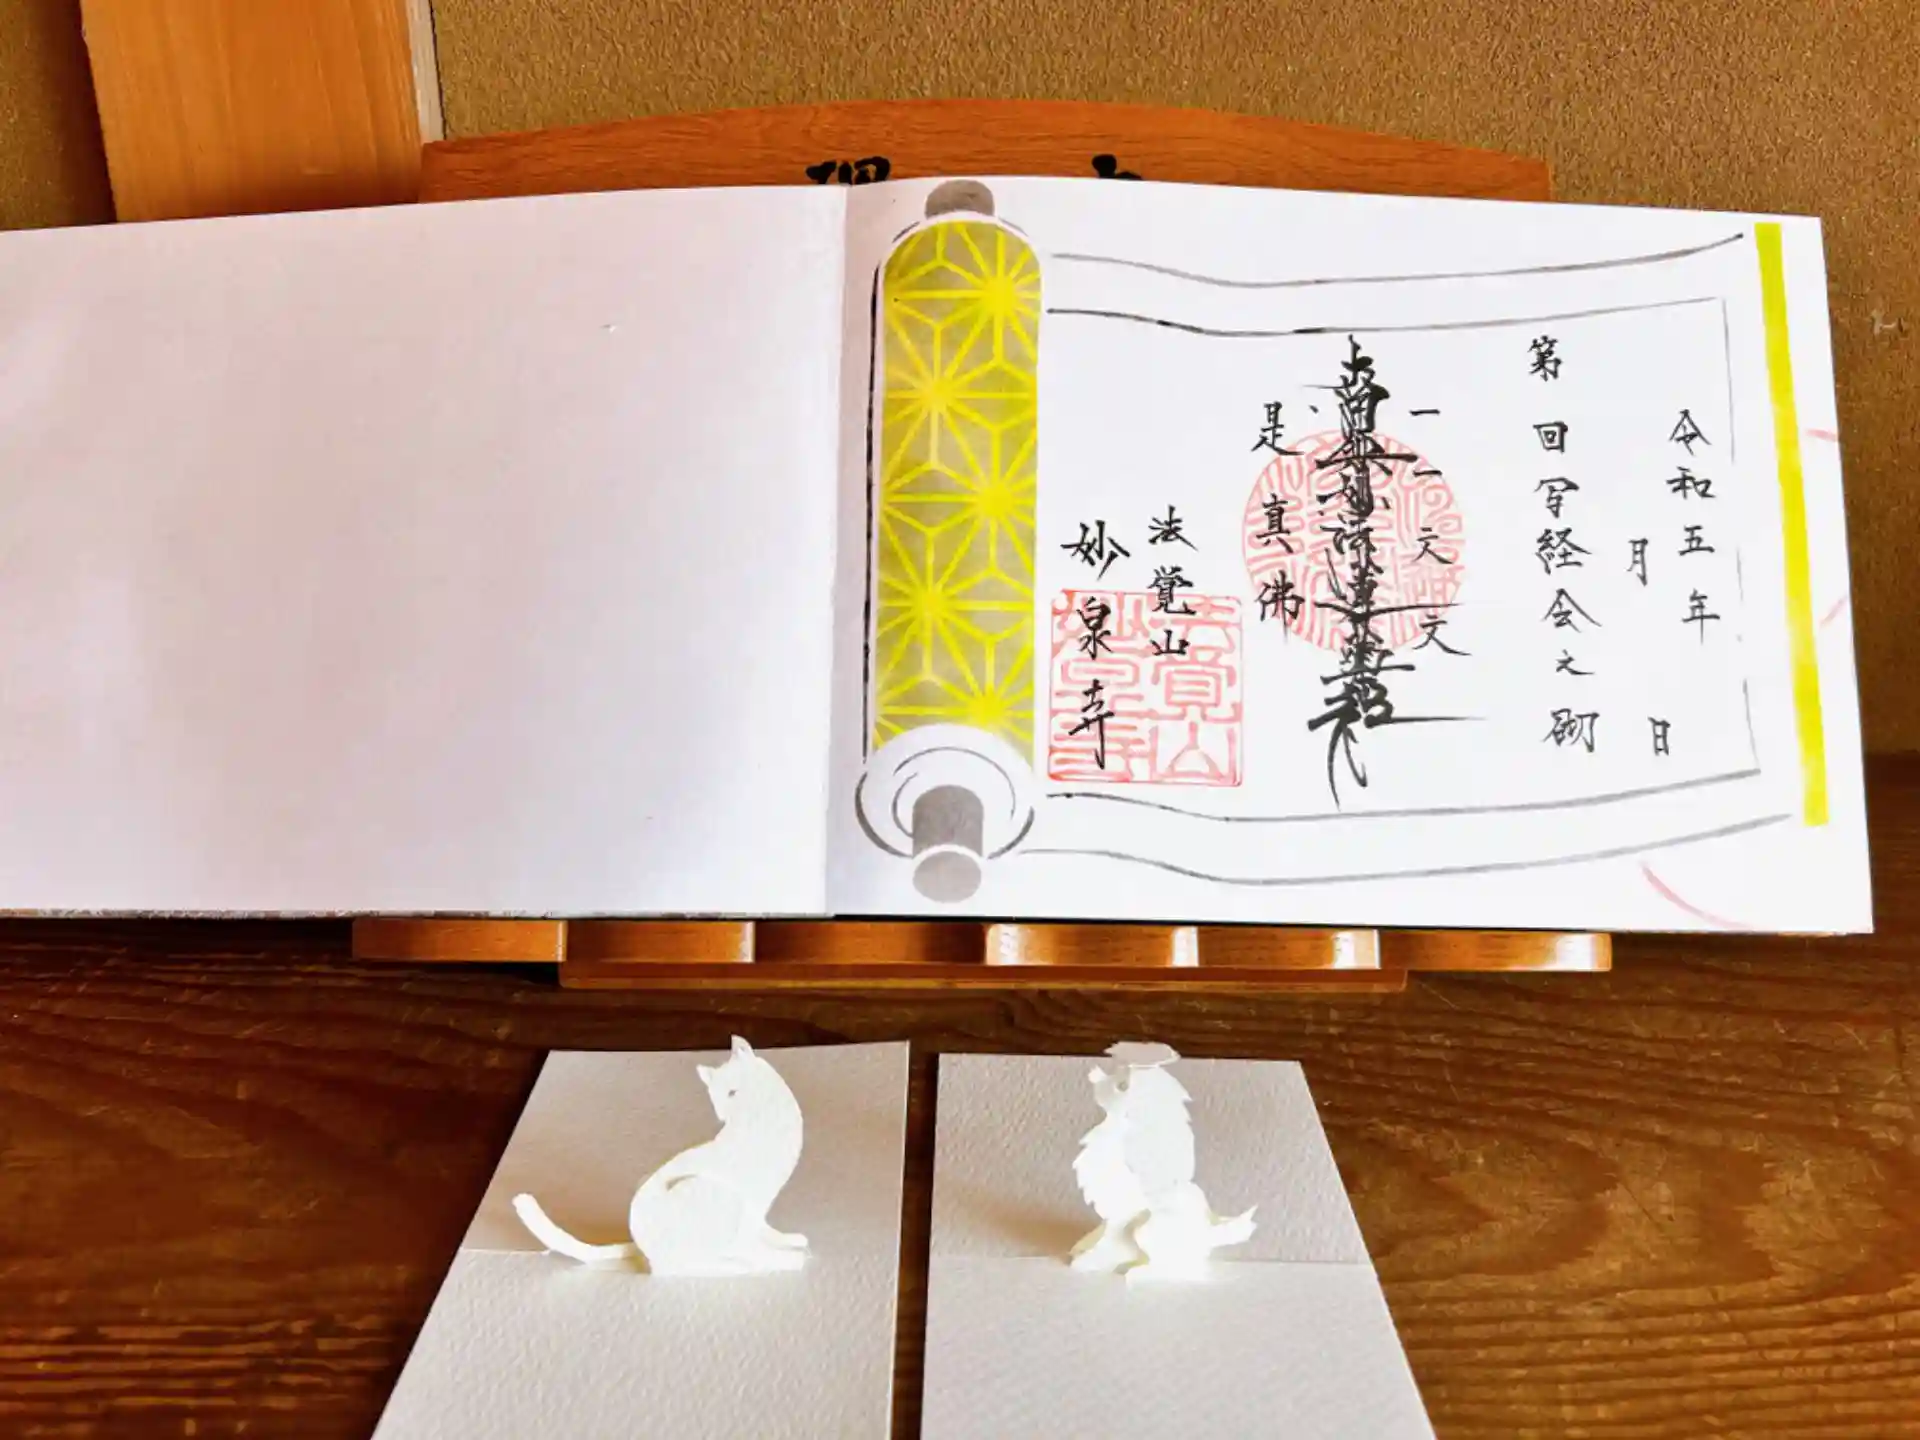 令和五年
月　日
第　回写経会之砌
一一文文
南無妙法蓮華経
是真佛
法覚山
妙泉寺
法覚山
妙泉寺